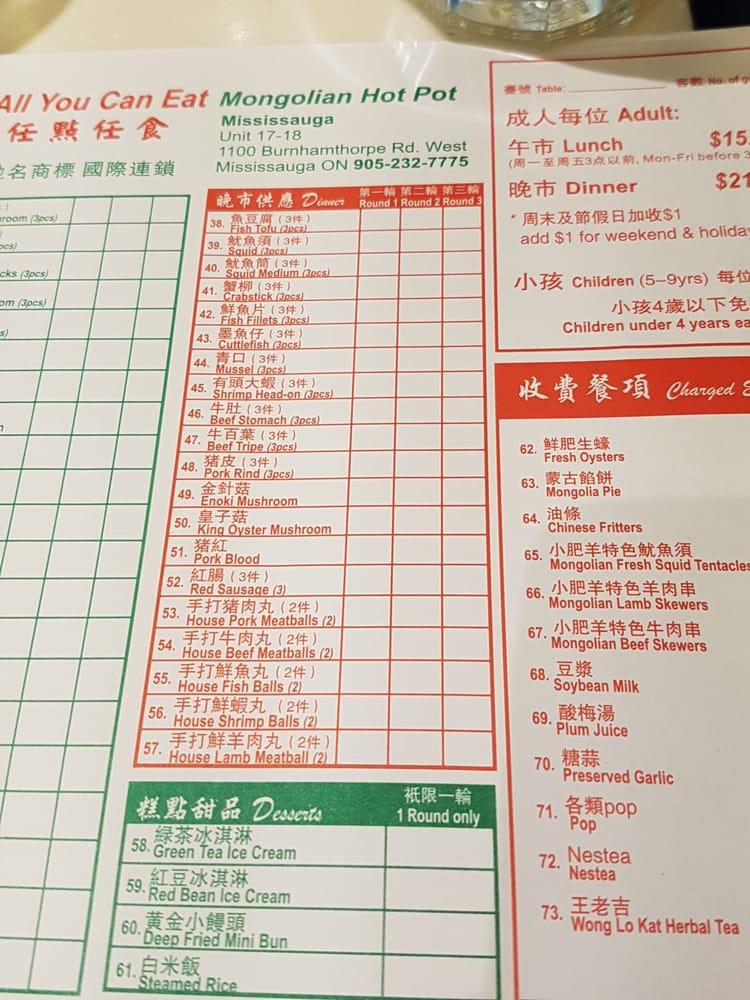 All You Can Eat Mongolian Hot Pot
任點任食
名商標 國際連鎖
Mississauga
Unit 17-18
1100 Burnhamthorpe Rd. West
Mississauga ON 905-232-7775
(3pcs)
(3pcs)
(3pcs)
晚市供應 Dinner
第一輪 第二輪 第三輪
Round 1 Round 2 Round 3
38. 魚豆腐（3件）
Fish Tofu (3pcs)
39. 魷魚須（3件）
Squid (3pcs)
40. 魷魚筒（3件）
Squid Medium (3pcs)
41. 蟹柳（3件）
Crabstick (3pcs)
42. 鮮魚片（3件）
Fish Fillets (3pcs)
43. 墨魚仔（3件）
Cuttlefish (3pcs)
44. 青口（3件）
Mussel (3pcs)
45. 有頭大蝦（3件）
Shrimp Head-on (3pcs)
46. 牛肚（3件）
Beef Stomach (3pcs)
47. 牛百葉（3件）
Beef Tripe (3pcs)
48. 猪皮（3件）
Pork Rind (3pcs)
49. 金針菇
Enoki Mushroom
50. 皇子菇
King Oyster Mushroom
51. 猪紅
Pork Blood
52. 紅腸（3件）
Red Sausage (3)
53. 手打猪肉丸（2件）
House Pork Meatballs (2)
54. 手打牛肉丸（2件）
House Beef Meatballs (2)
55. 手打鮮魚丸（2件）
House Fish Balls (2)
56. 手打鮮蝦丸（2件）
House Shrimp Balls (2)
57. 手打鮮羊肉丸（2件）
House Lamb Meatball (2)
糕點甜品 Desserts
祇限一輪
1 Round only
58. 緑茶冰淇淋
Green Tea Ice Cream
59. 紅豆冰淇淋
Red Bean Ice Cream
60. 黄金小饅頭
Deep Fried Mini Bun
61. 白米飯
Steamed Rice
臺號 Table: 客數 No. of
成人每位 Adult:
午市 Lunch $15.
(周一至周五3点以前, Mon-Fri before 3
晚市 Dinner $21
* 周末及節假日加收$1
add $1 for weekend & holiday
小孩 Children (5–9yrs) 每位
小孩4歲以下免
Children under 4 years
收費餐項 Charged
62. 鮮肥生蠔
Fresh Oysters
63. 蒙古餡餅
Mongolia Pie
64. 油條
Chinese Fritters
65. 小肥羊特色魷魚須
Mongolian Fresh Squid Tentacles
66. 小肥羊特色羊肉串
Mongolian Lamb Skewers
67. 小肥羊特色牛肉串
Mongolian Beef Skewers
68. 豆漿
Soybean Milk
69. 酸梅湯
Plum Juice
70. 糖蒜
Preserved Garlic
71. 各類pop
Pop
72. Nestea
Nestea
73. 王老吉
Wong Lo Kat Herbal Tea